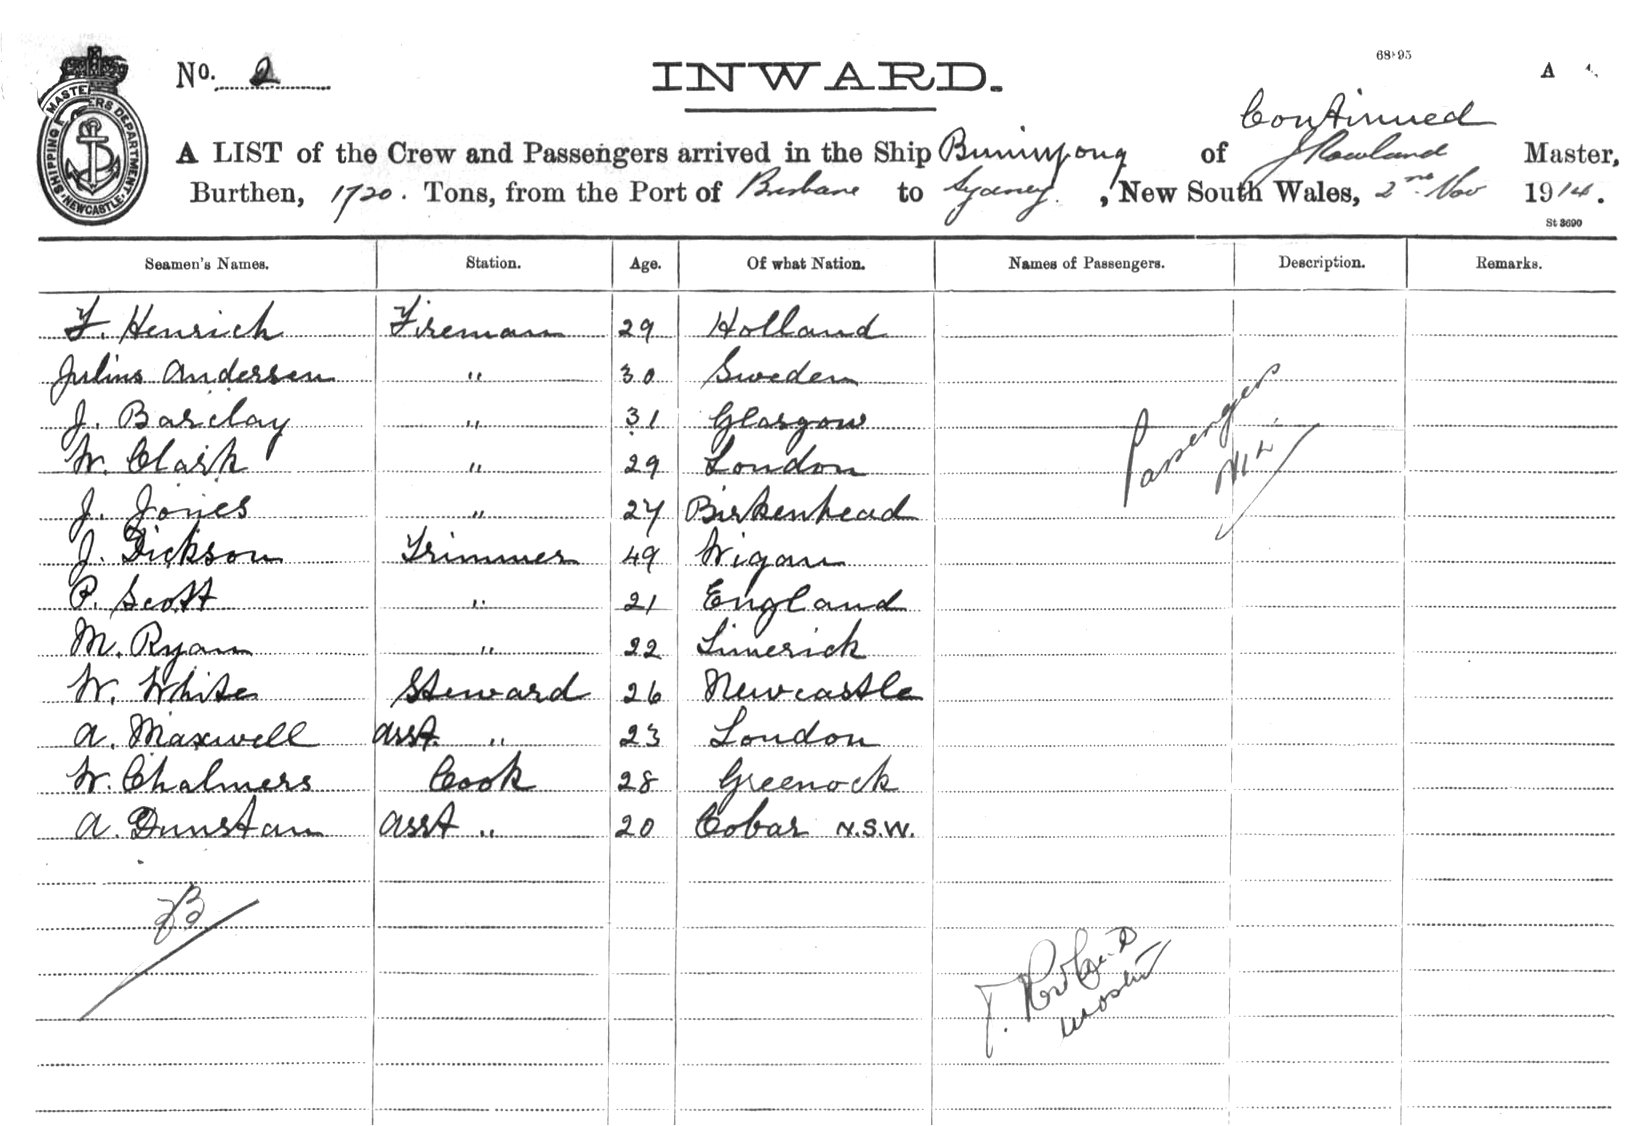 68-95
No. 2
INWARD.
A
Continued
A LIST of the Crew and Passengers arrived in the Ship Buninyong of J Rowland Master,
Burthen, 1720. Tons, from the Port of Brisbane to Sydney, New South Wales, 2nd Nov 1914.
St 3690
SHIPPING MASTERS DEPARTMENT NEWCASTLE
Seamen's Names. Station. Age. Of what Nation. Names of Passengers. Description. Remarks.
F. Henrich Fireman 29 Holland
Julius Andersen " 30 Sweden
J. Barclay " 31 Glasgow
W. Clark " 29 London
J. Jones " 27 Birkenhead
J. Dickson Trimmer 49 Wigan
P. Scott " 21 England
M. Ryan " 22 Limerick
W. White Steward 26 Newcastle
A. Maxwell Asst. " 23 London
W. Chalmers Cook 28 Greenock
A. Dunstan Asst " 20 Cobar N.S.W.
Passengers
Nil.
J.
Master